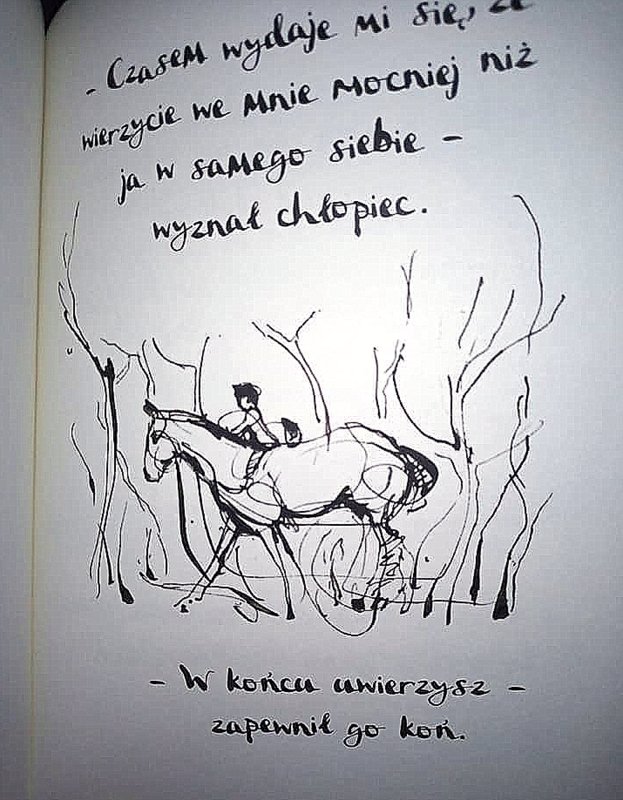 - Czasem wydaje mi się, że
wierzycie we mnie mocniej niż
ja w samego siebie -
wyznał chłopiec.
- W końcu uwierzysz -
zapewnił go koń.